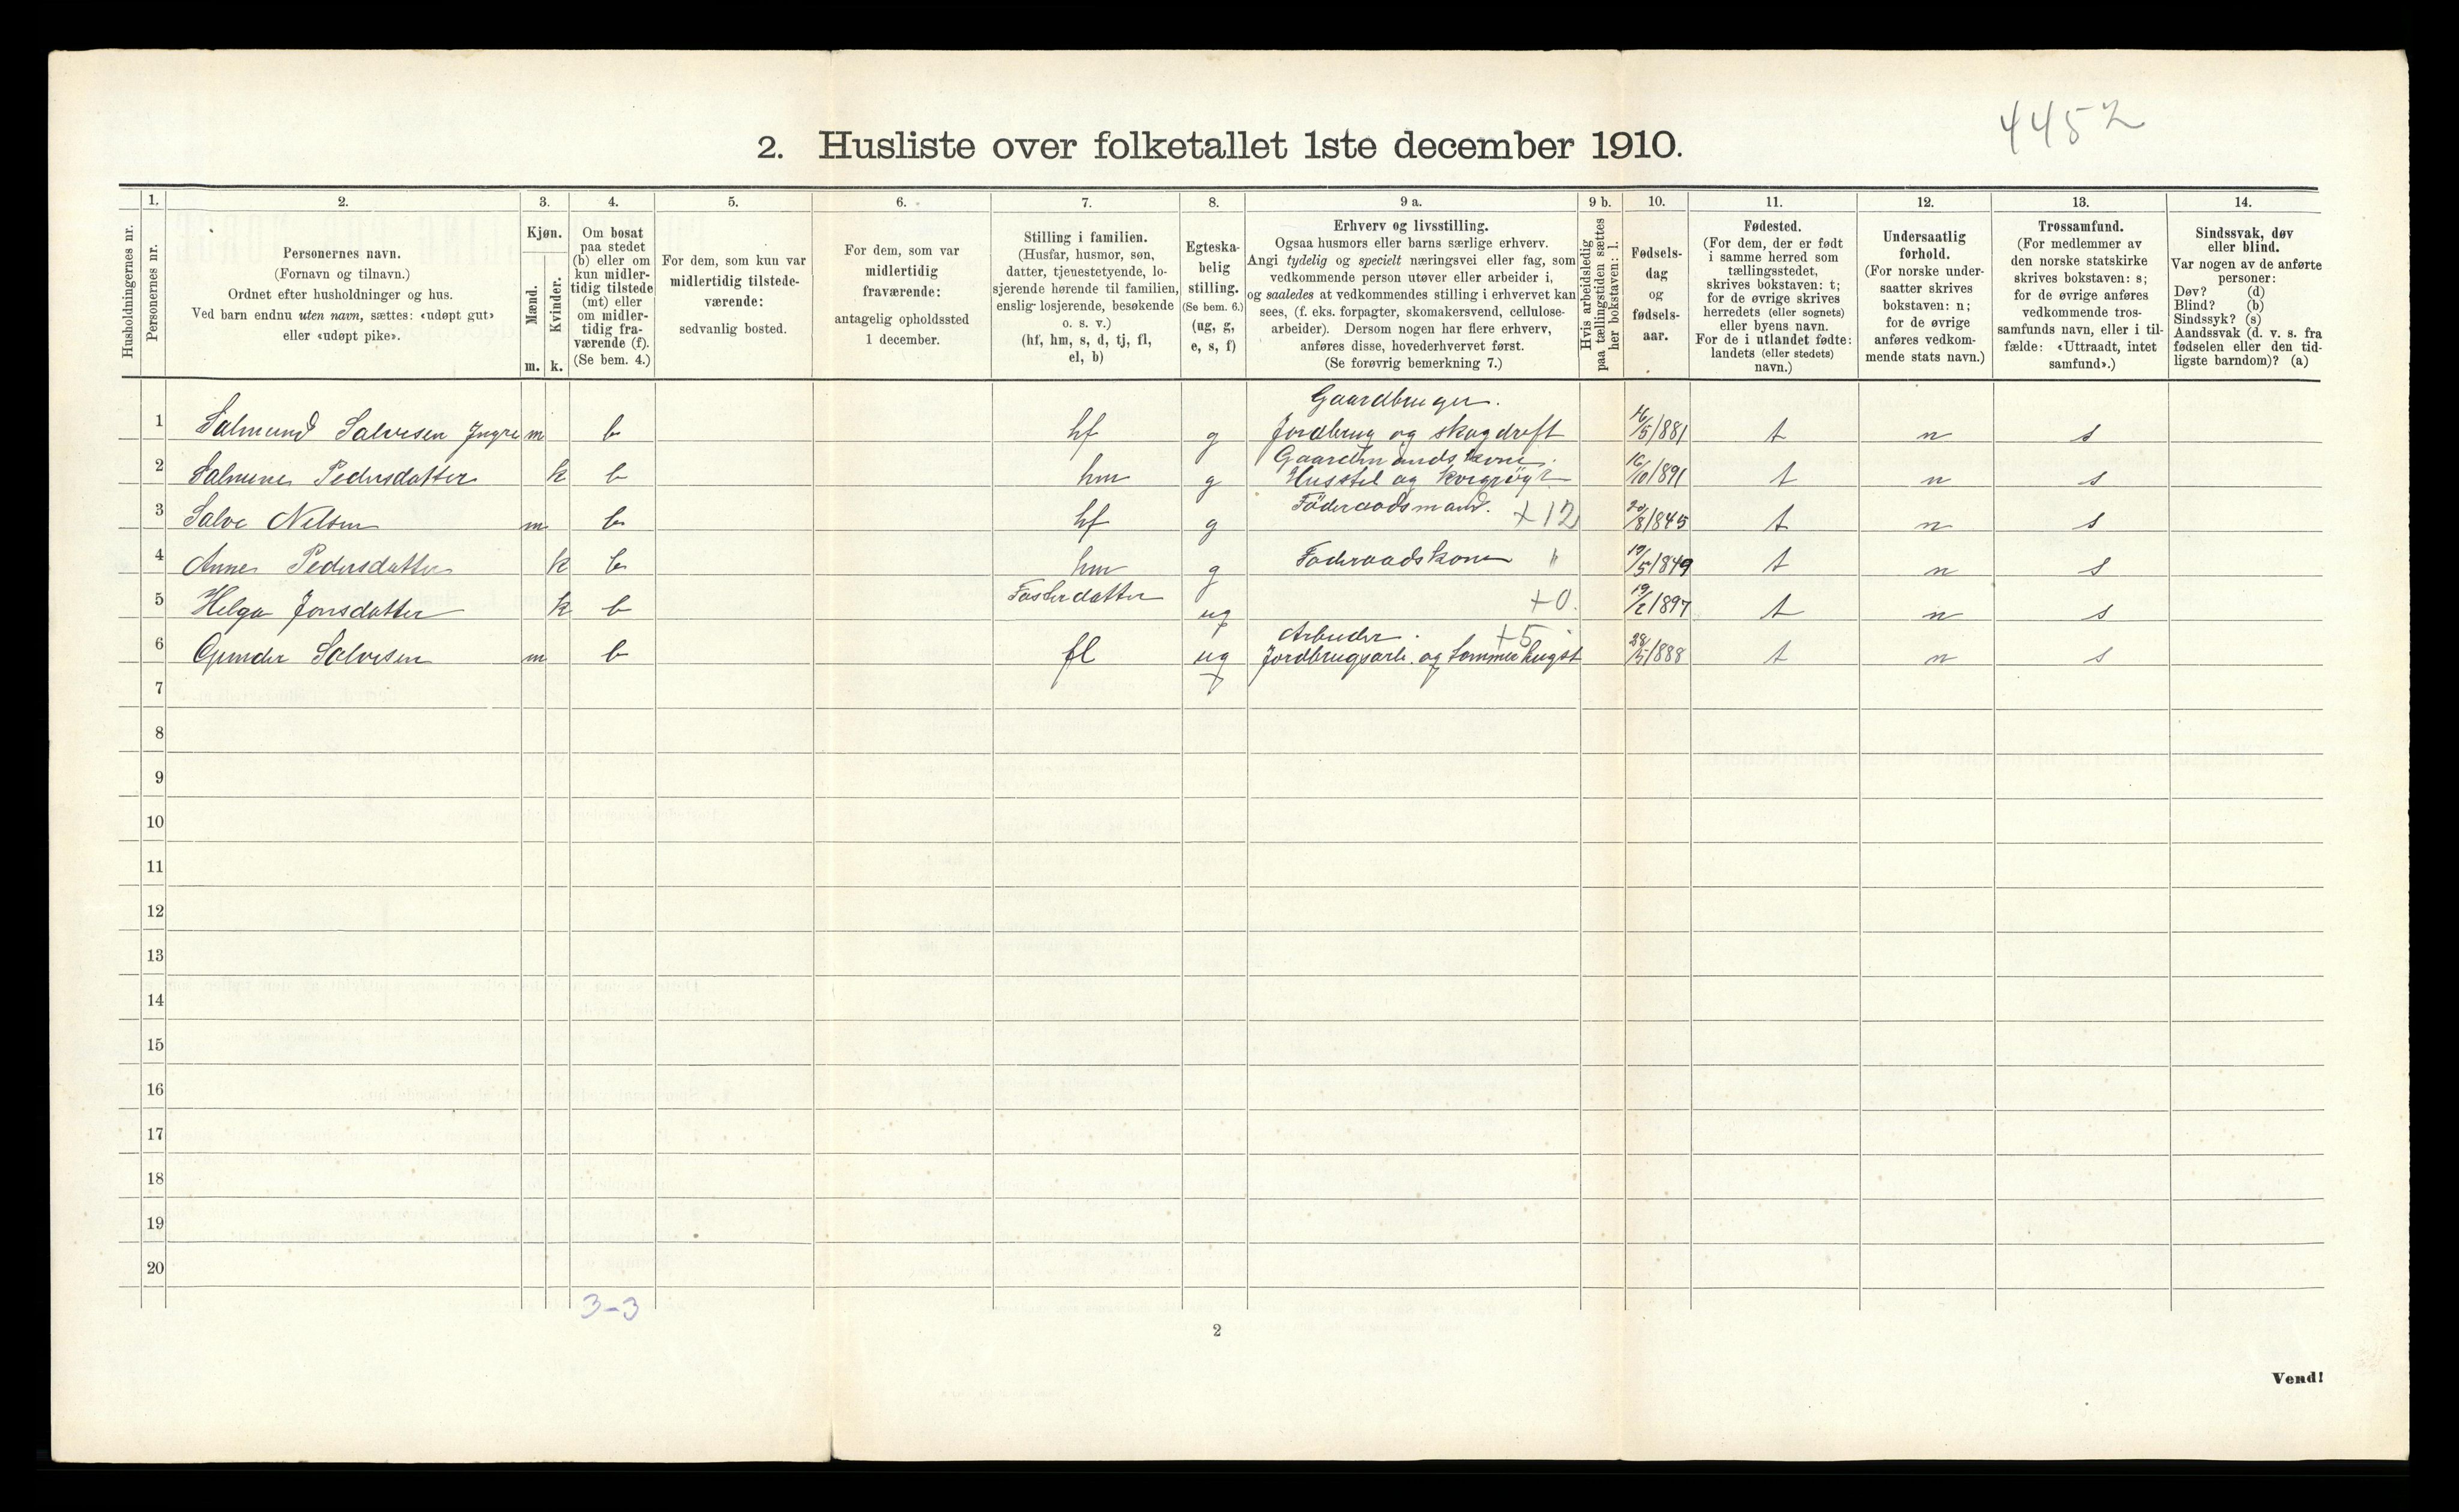 4452
2. Husliste over folketallet 1ste december 1910.
Husholdningernes nr.
1.
Personernes nr.
2.
Personernes navn.
(Fornavn og tilnavn.)
Ordnet efter husholdninger og hus.
Ved barn endnu uten navn, sættes: «udøpt gut»
eller «udøpt pike».
3.
Kjøn.
Mænd.
Kvinder.
m. k.
4.
Om bosat
paa stedet
(b) eller om
kun midler-
tidig tilstede
(mt) eller
om midler-
tidig fra-
værende (f).
(Se bem. 4.)
5.
For dem, som kun var
midlertidig tilstede-
værende:
sedvanlig bosted.
6.
For dem, som var
midlertidig
fraværende:
antagelig opholdssted
1 december.
7.
Stilling i familien.
(Husfar, husmor, søn,
datter, tjenestetyende, lo-
sjerende hørende til familien,
enslig losjerende, besøkende
o. s. v.)
(hf, hm, s, d, tj, fl,
el, b)
8.
Egteska-
belig
stilling.
(Se bem. 6.)
(ug, g,
e, s, f)
9 a.
Erhverv og livsstilling.
Ogsaa husmors eller barns særlige erhverv.
Angi tydelig og specielt næringsvei eller fag, som
vedkommende person utøver eller arbeider i,
og saaledes at vedkommendes stilling i erhvervet kan
sees, (f. eks. forpagter, skomakersvend, cellulose-
arbeider). Dersom nogen har flere erhverv,
anføres disse, hovederhvervet først.
(Se forøvrig bemerkning 7.)
9 b.
Hvis arbeidsledig
paa tællingstiden sættes
her bokstaven: l.
10.
Fødsels-
dag
og
fødsels-
aar.
11.
Fødested.
(For dem, der er født
i samme herred som
tællingsstedet,
skrives bokstaven: t;
for de øvrige skrives
herredets (eller sognets)
eller byens navn.
For de i utlandet fødte:
landets (eller stedets)
navn.)
12.
Undersaatlig
forhold.
(For norske under-
saatter skrives
bokstaven: n;
for de øvrige
anføres vedkom-
mende stats navn.)
13.
Trossamfund.
(For medlemmer av
den norske statskirke
skrives bokstaven: s;
for de øvrige anføres
vedkommende tros-
samfunds navn, eller i til-
fælde: «Uttraadt, intet
samfund».)
14.
Sindssvak, døv
eller blind.
Var nogen av de anførte
personer:
Døv? (d)
Blind? (b)
Sindssyk? (s)
Aandssvak (d. v. s. fra
fødselen eller den tid-
ligste barndom)? (a)
Gaardbruger.
1 Salmund Salvesen m b hf g Jordbrug og skogdrift 16/5/881 t n s
Gaardmandskone.
2 Salmine Pedersdatter k b hm g Husstel og 16/10/891 t n s
Föderaadsmand.
3 Salve Nelsen m b hf g +12 20/8/845 t n s
4 Anne Pedersdatter k b hm g Föderaadskone " 19/5/849 t n s
5 Helga Jonsdatter k b Fosterdatter ug +0. 19/2/897 t n s
Arbeider. +5
6 Gunder Salvesen m b fl ug Jordbrugsarb. og tømmerhugst /888 t n s
7
8
9
10
11
12
13
14
15
16
17
18
19
20
3-3
2
Vend!